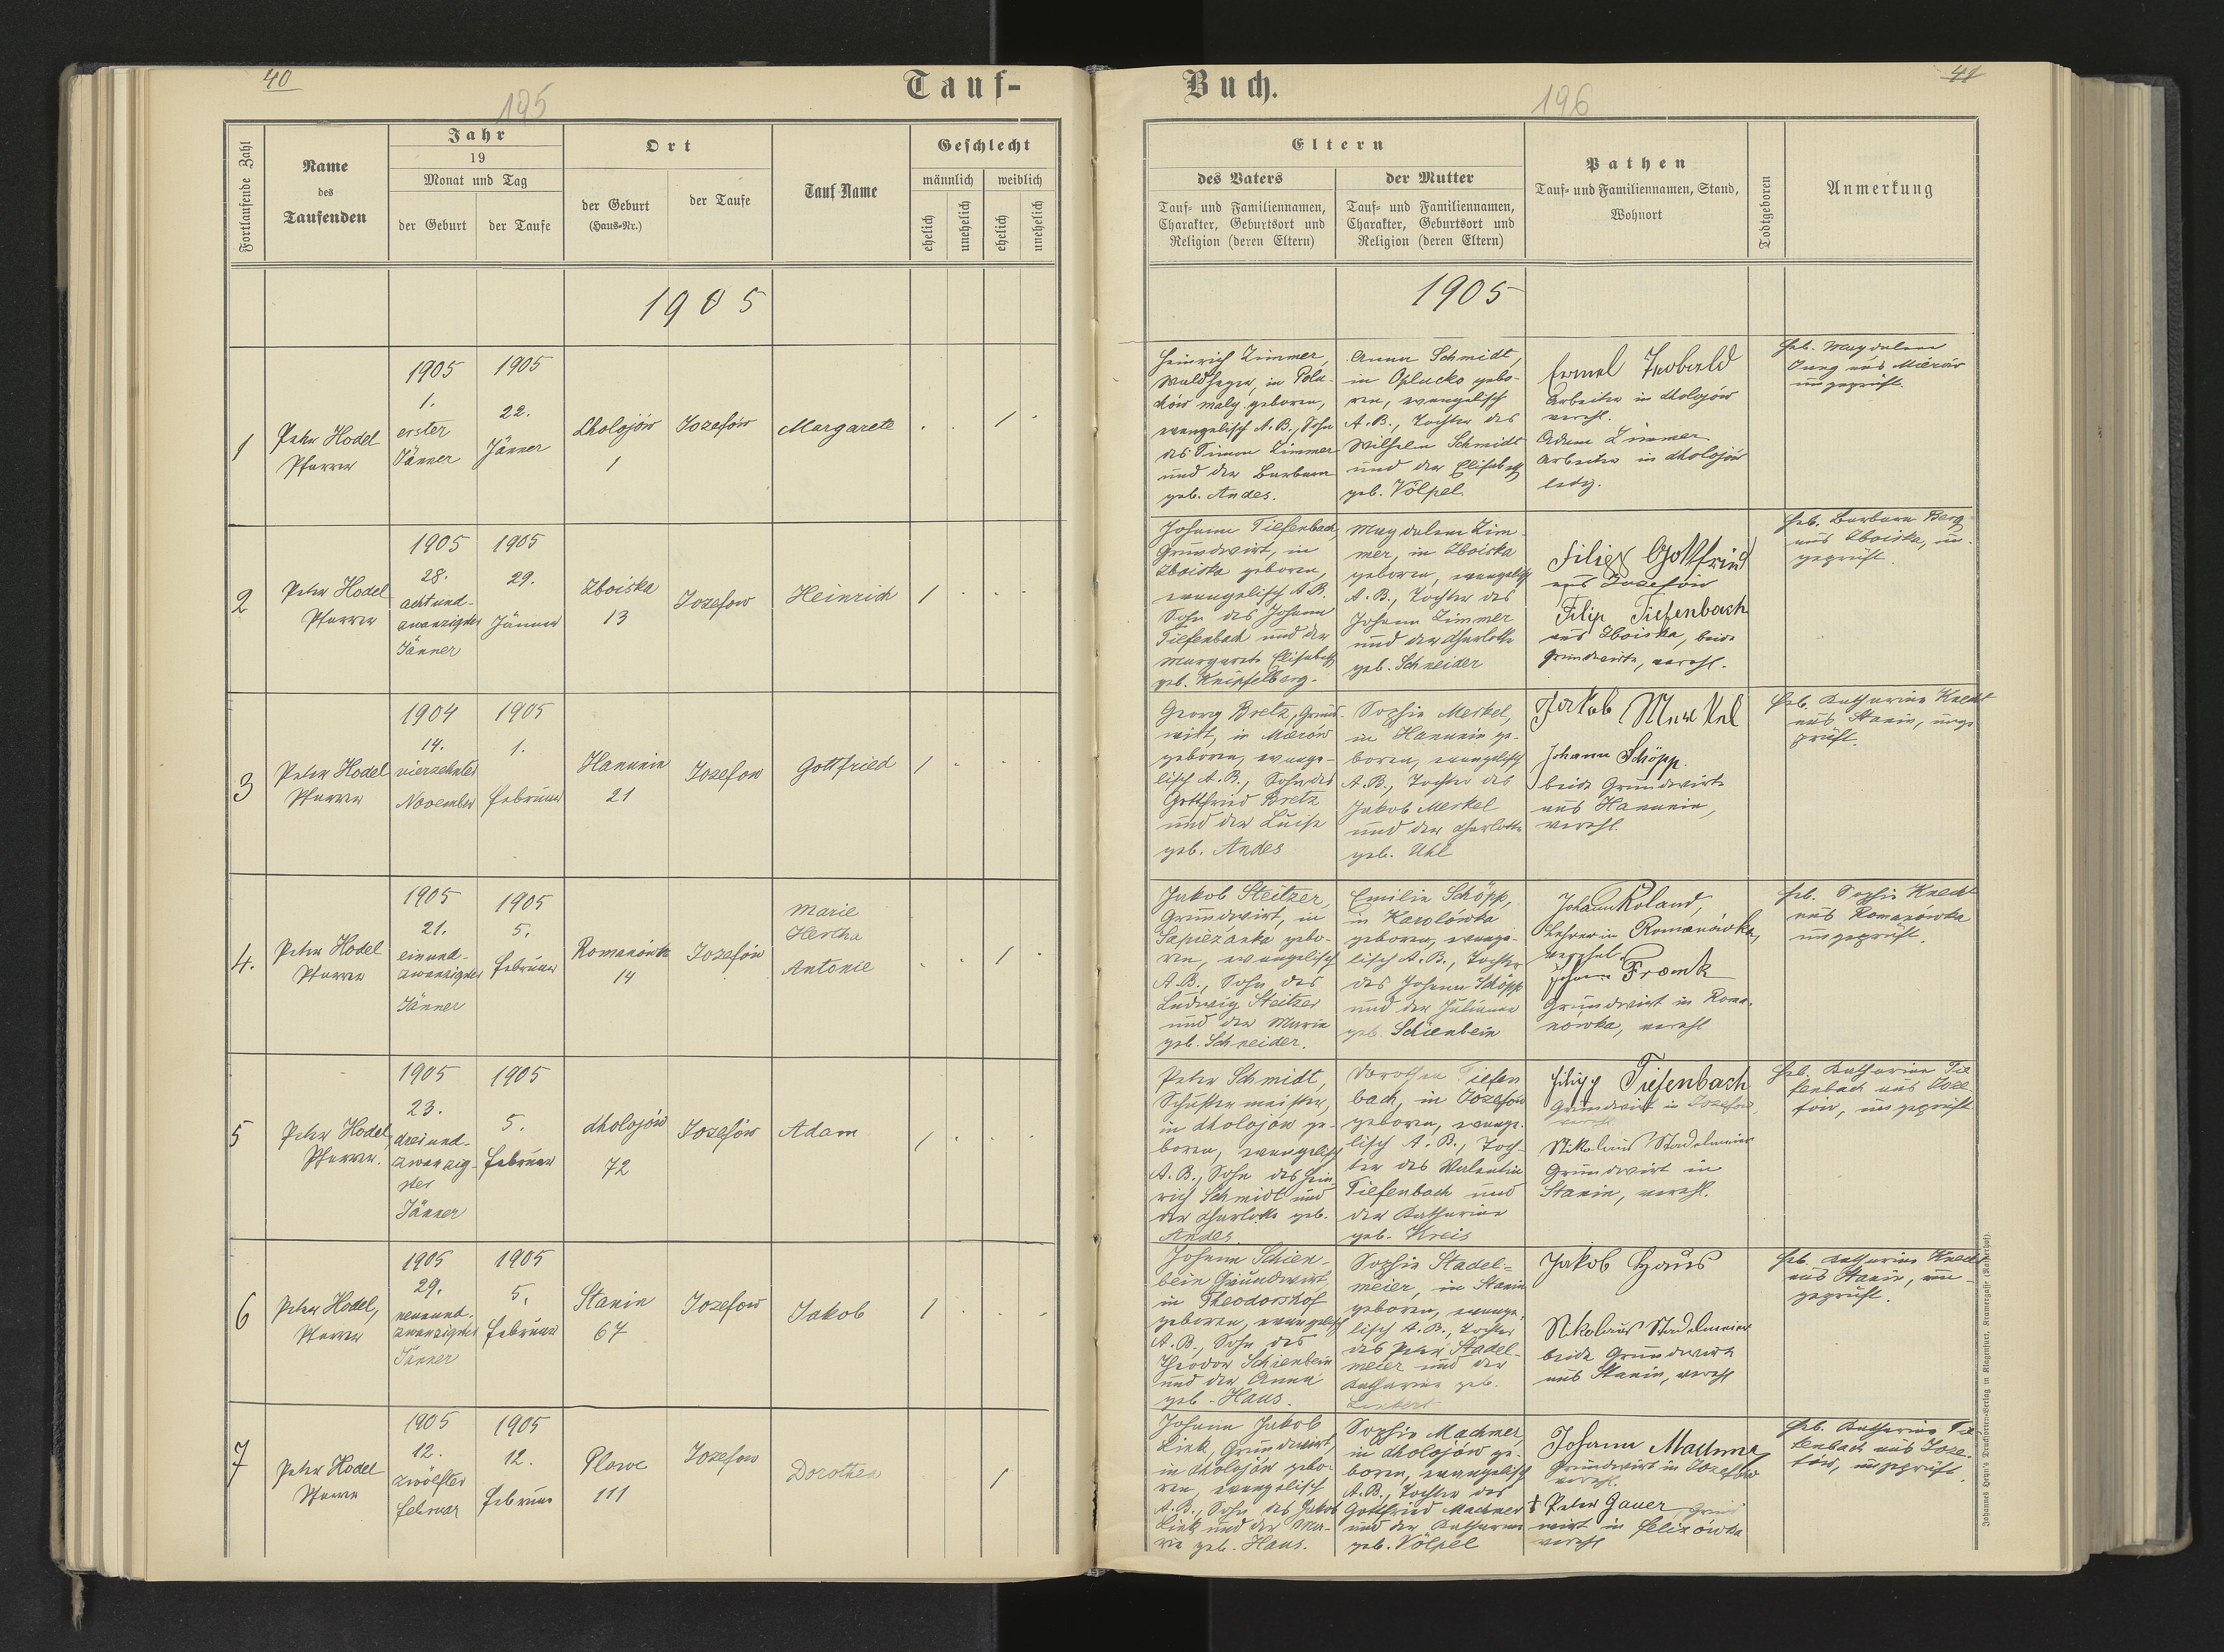 40
195
Tauf-
Fortlaufende Zahl
Name
des
Taufenden
Jahr
19
Monat und Tag
der Geburt
der Taufe
Ort
der Geburt
(Haus-Nr.)
der Taufe
Tauf-Name
Geschlecht
männlich
weiblich
ehelich
unehelich
ehelich
unehelich
1905
1
Peter Hodel
Pfarrer
1905
1.
erster
Jänner
1905
22.
Jänner
Cholojów
1
Jozefów
Margarete
1
2
Peter Hodel
Pfarrer
1905
28.
achtund-
zwanzigster
Jänner
1905
29.
Jänner
Zboiska
13
Jozefow
Heinrich
1
3
Peter Hodel
Pfarrer
1904
14.
vierzehnter
November
1905
1.
Februar
Hanunin
21
Jozefow
Gottfried
1
4.
Peter Hodel
Pfarrer
1905
21.
einund-
zwanzigster
Jänner
1905
5.
Februar
Romanówka
14
Jozefów
Marie
Hertha
Antonie
1
5
Peter Hodel,
Pfarrer.
1905
23.
dreiund-
zwanzig-
ster
Jänner
1905
5.
Februar
Cholojów
72
Jozefów
Adam
1
6
Peter Hodel,
Pfarrer
1905
29.
neunund-
zwanzigster
Jänner
1905
5.
Februar
Stanin
67
Jozefow
Jakob
1
7
Peter Hodel
Pfarrer
1905
12.
zwölfter
Februar
1905
12.
Februar
Plowe
111
Jozefow
Dorothea
1
41
196
Buch.
Eltern
des Vaters
Tauf- und Familiennamen,
Charakter, Geburtsort und
Religion (deren Eltern)
der Mutter
Tauf- und Familiennamen,
Charakter, Geburtsort und
Religion (deren Eltern)
Pathen
Tauf- und Familiennamen, Stand,
Wohnort
Todtgeboren
Anmerkung
1905
Heinrich Zimmer,
Waldheger, in
maly geboren,
evangelisch A.B., Sohn
des Simon Zimmer
und der Barbara
geb. Andes.
Anna Schmidt,
in Oplucko gebo-
ren, evangelisch
A.B., Tochter des
Wilhelm Schmidt
und der Elisabeth
geb. Völpel
Arbeiter in Cholojów
verehl.
Adam Zimmer
Arbeiter in Cholojów
ledig.
Heb. Magdalena
Jung aus Mierów
ungeprüft.
Johann Tiefenbach,
Grundwirt, in
Zboiska geboren,
evangelisch A.B.
Sohn des Johann
Tiefenbach und der
Margarete Elisabeth
geb. Knipfelberg.
Magdalena Zim-
mer, in Zboiska
geboren, evangelisch
A.B., Tochter des
Johann Zimmer
und der Charlotte
geb. Schneider
Filipp Gottfried
aus Jozefow
Filip Tiefenbach
aus Zboiska, beide
Grundwirte, verehl.
Heb. Barbara Berg
aus Zboiska, un-
geprüft.
Georg Bretz, Grund-
wirt, in Mierów
geboren, evange-
lisch A.B., Sohn des
Gottfried Bretz
und der Luise
geb. Andes
Sophie Merkel,
in Hanunin ge-
boren, evangelisch
A.B., Tochter des
Jakob Merkel
und der Charlotte
geb. Uhl
Jakob Merkel
Johann Schöpp.
beide Grundwirte
aus Hanunin,
verehl.
Heb. Katharina Knecht
aus Stanin, unge-
prüft.
Jakob Steitzer,
Grundwirt, in
Sapiezanka gebo-
ren, evangelisch
A.B., Sohn des
Ludwig Steitzer
und der Marie
geb. Schneider.
Emilie Schöpp,
in Karolówka
geboren, evange-
lisch A.B., Tochter
des Johann Schöpp
und der Juliana
geb. Schienbein
Johann Roland,
Lehrer in Romanówka,
verehel.
Johann Fromk
Grundwirt in Roma-
nówka, verehl
Heb. Sophie Knecht
aus Romanówka
ungeprüft.
Peter Schmidt,
Schustermeister,
in Cholojów ge-
boren, evangelisch
A.B., Sohn des Hein-
rich Schmidt und
der Charlotte geb.
Andes
Dorothea Tiefen
bach, in Jozefow
geboren, evange-
lisch A.B., Toch-
ter des Valentin
Tiefenbach und
der Katharine
geb. Kreis
Filipp Tiefenbach
Grundwirt in Jozefow,
verehl.
Nikolaus Stadelmeier
Grundwirt in
Stanin, verehl.
Heb. Katharine Tie
fenbach aus Joze-
fow, ungeprüft
Johann Schien-
bein Grundwirt,
in Theodorshof
geboren, evangelisch
A.B., Sohn des
Theodor Schienbein
und der Anna
geb. Haus.
Sophie Stadel-
meier, in Stanin
geboren, evange-
lisch A.B., Tochter
des Peter Stadel-
meier und der
Katharine geb.
Jakob Haus
Nikolaus Stadelmeier
beide Grundwirte
aus Stanin, verehl
Heb. Katharine Knecht
aus Stanin, un-
geprüft.
Johann Jakob
Link, Grundwirt,
in Cholojów gebo-
ren, evangelisch
A.B., Sohn des Jakob
Link und der Ma-
rie geb. Haus.
Sophie Machmer,
in Cholojów ge-
boren, evangelisch
A.B., Tochter des
Gottfried Machmer
und der Katharine
geb. Völpel
Johann Machmer
Grundwirt in Jozefow
verehl.
† Peter Gauer, Grund
wirt in Felixówka
verehl
Heb. Katharina Tie
fenbach aus Joze-
fow, ungeprüft.
Johannes Heyn's Drucksorten-Verlag in Klagenfurt, Kramergasse (Rainerhof).